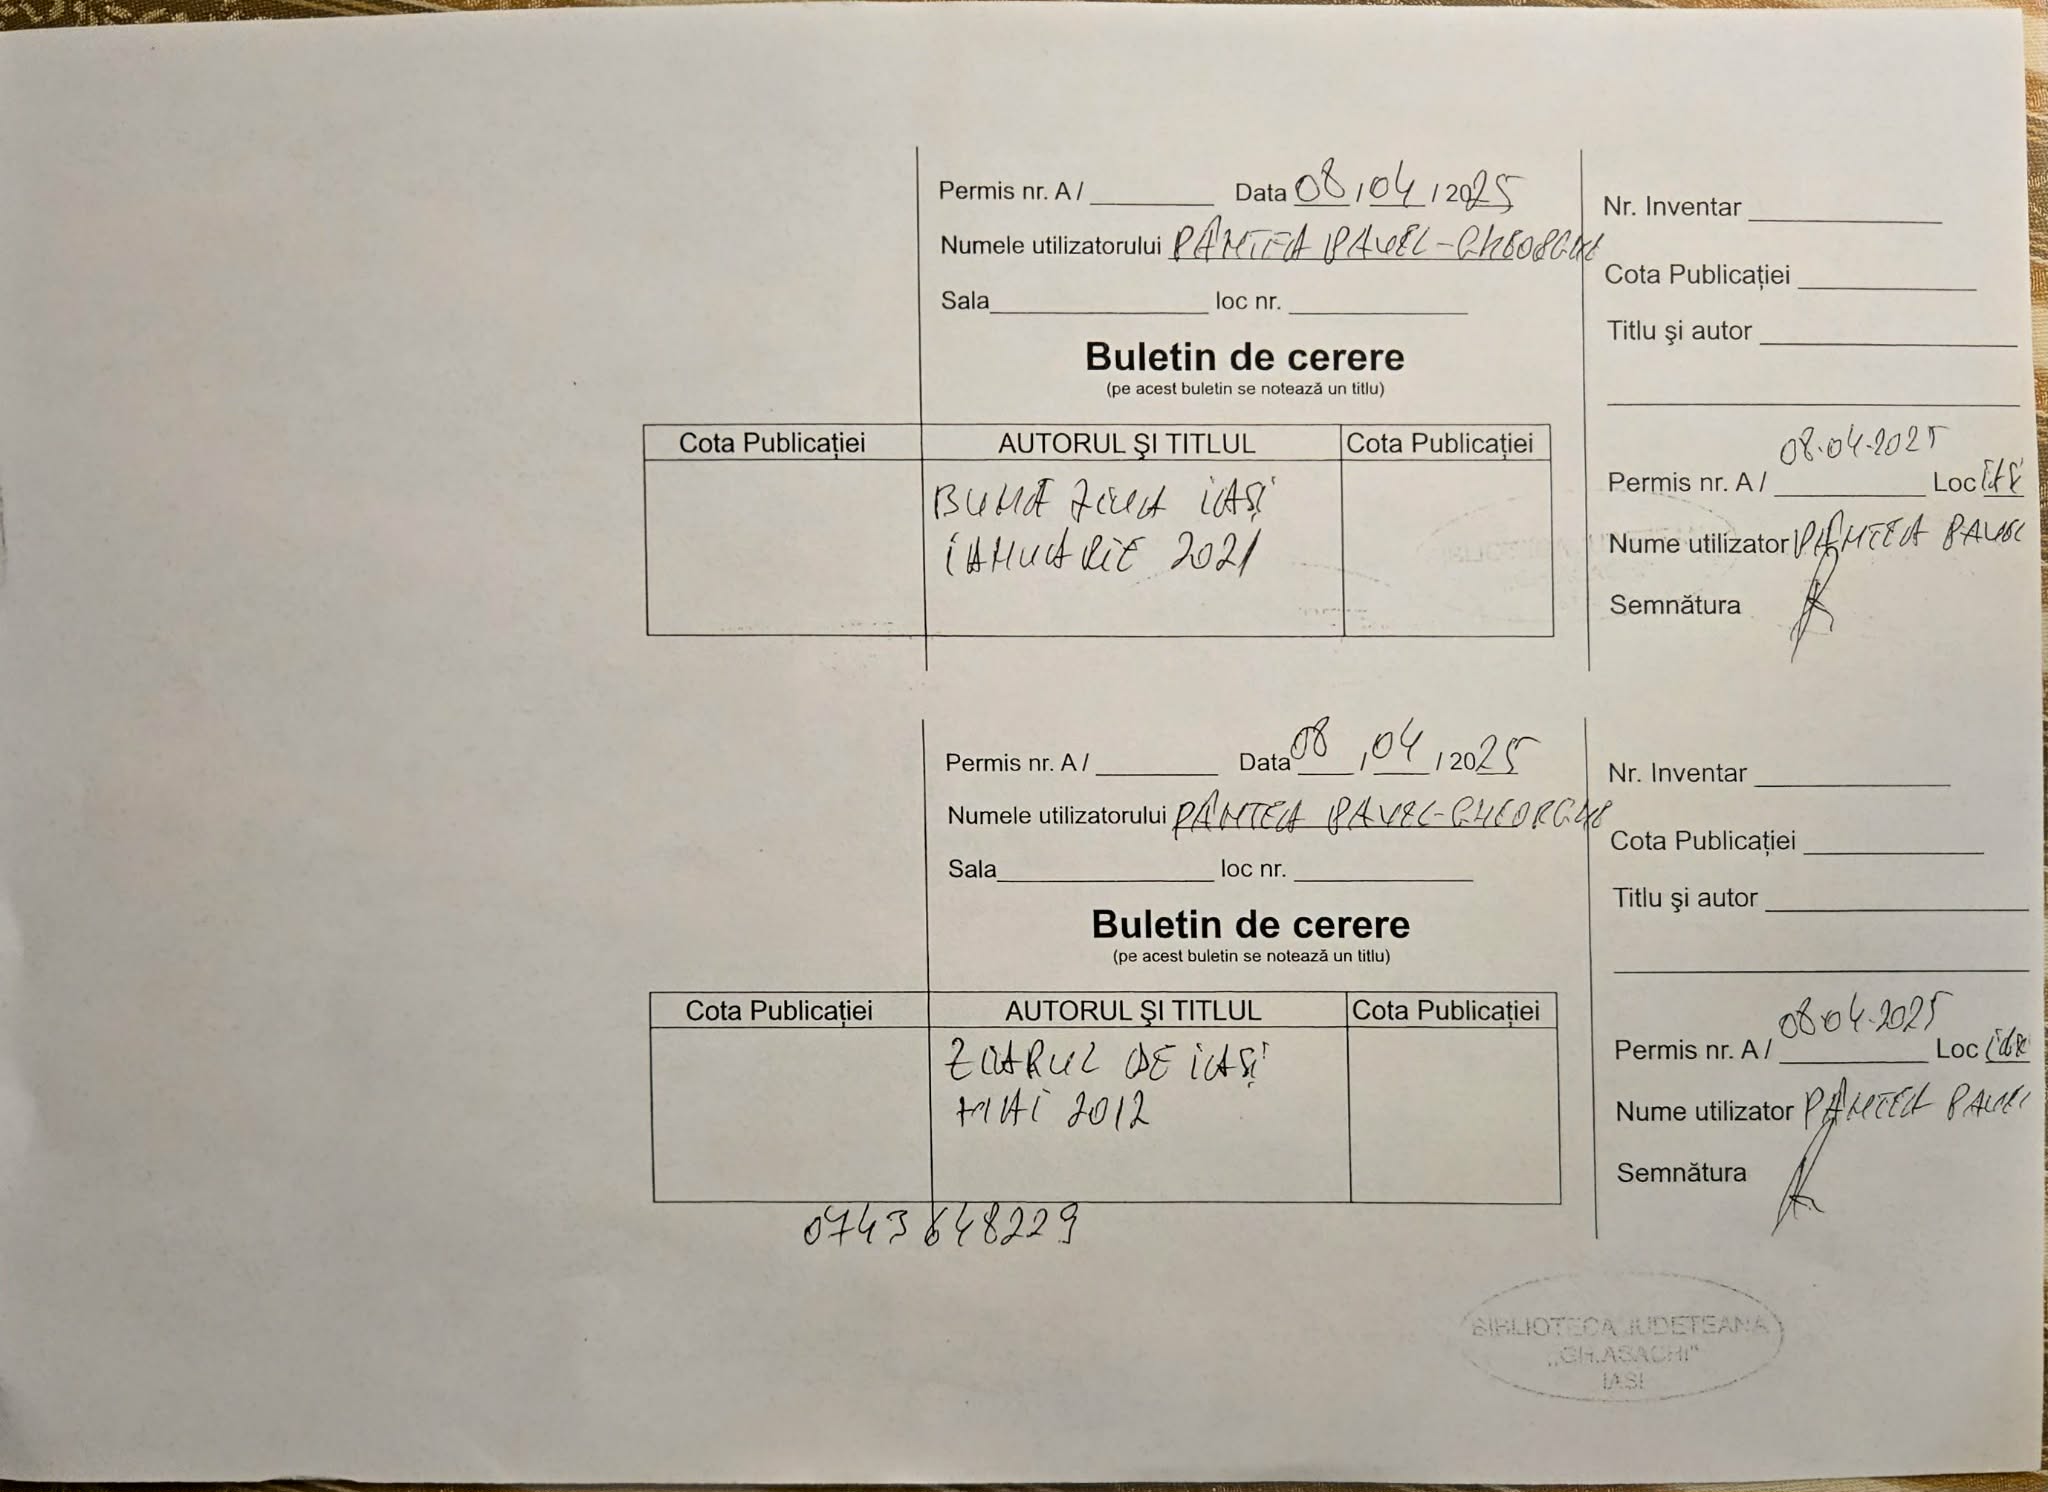 Permis nr. A / ________ Data 08 / 04 / 2025
Numele utilizatorului PÂNTEA PAVEL-GHEORGHE
Sala________ loc nr. ________
Buletin de cerere
(pe acest buletin se notează un titlu)
Cota Publicației AUTORUL ŞI TITLUL Cota Publicației
BUNĂ ZIUA IAȘI
IANUARIE 2021
Nr. Inventar ________
Cota Publicației ________
Titlu şi autor ________
08.04.2025
Permis nr. A / ________ Loc
Nume utilizator PÂNTEA PAVEL
Semnătura
Permis nr. A / ________ Data 08 / 04 / 2025
Numele utilizatorului PÂNTEA PAVEL-GHEORGHE
Sala________ loc nr. ________
Buletin de cerere
(pe acest buletin se notează un titlu)
Cota Publicației AUTORUL ŞI TITLUL Cota Publicației
ZIARUL DE IAȘI
MAI 2012
0743648229
Nr. Inventar ________
Cota Publicației ________
Titlu şi autor ________
08.04.2025
Permis nr. A / ________ Loc
Nume utilizator PÂNTEA PAVEL
Semnătura
BIBLIOTECA JUDETEANA
„GH.ASACHI"
IASI